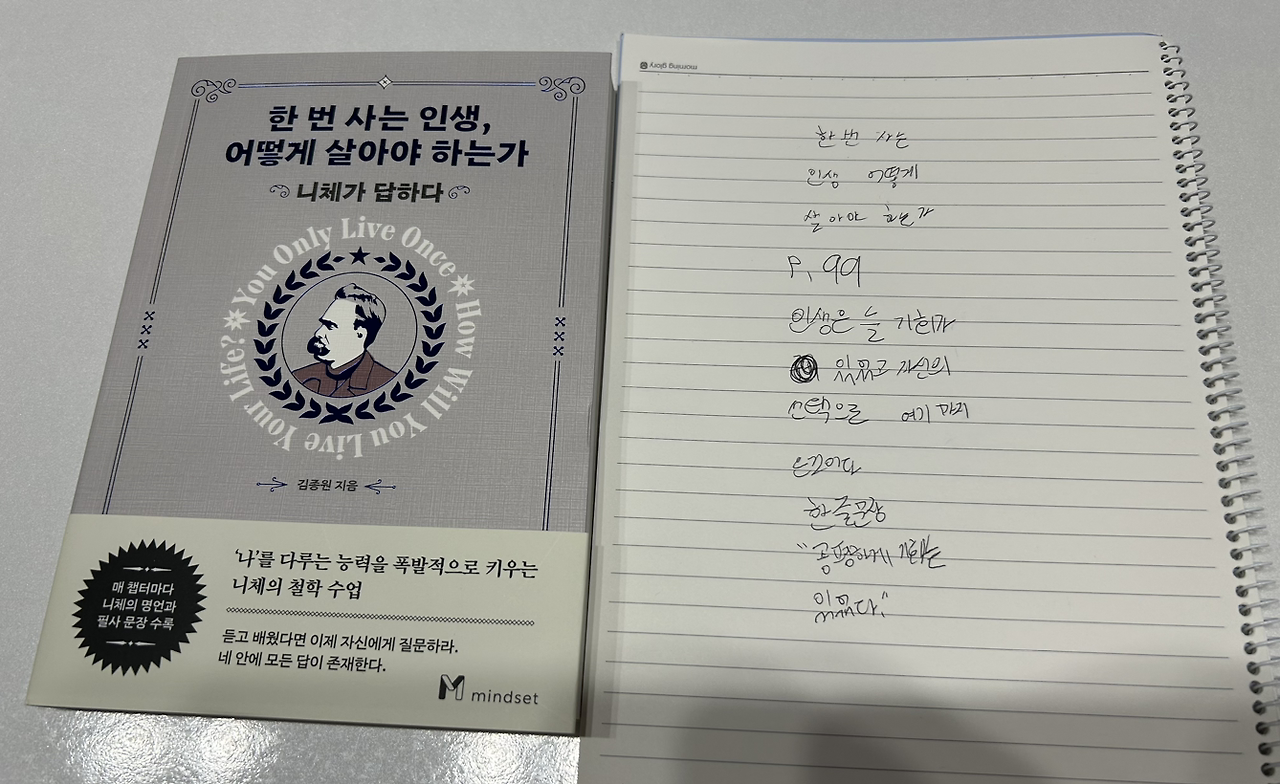 한 번 사는 인생,
어떻게 살아야 하는가
니체가 답하다
You Only Live Once
How Will You Live Your Life?
김종원 지음
매 챕터마다
니체의 명언과
필사 문장 수록
'나'를 다루는 능력을 폭발적으로 키우는
니체의 철학 수업
듣고 배웠다면 이제 자신에게 질문하라.
네 안에 모든 답이 존재한다.
mindset
morning glory
한 번 사는
인생 어떻게
살아야 하는가
P. 99
인생은 늘 기회가
있었고 자신의
선택으로 여기까지
한 줄 문장
"공평하게 기회는
있었다."